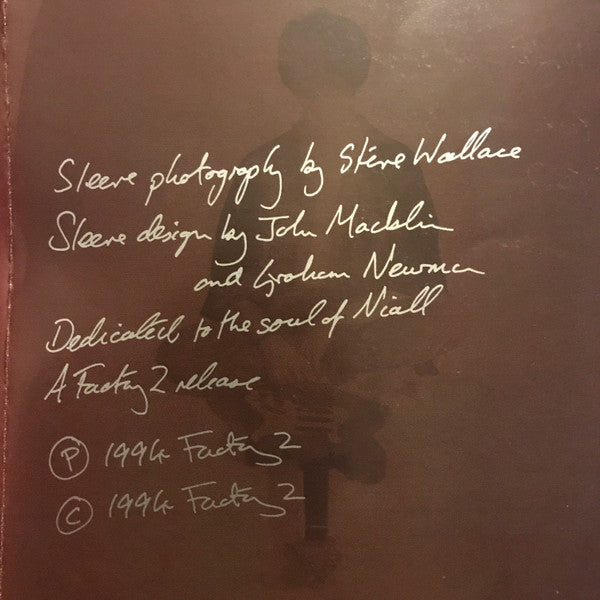 Sleeve photography by Steve Wallace
Sleeve design by John Macklin
and Graham Newman
Dedicated to the soul of Niall
A Factory 2 release
Ⓟ 1994 Factory 2
© 1994 Factory 2